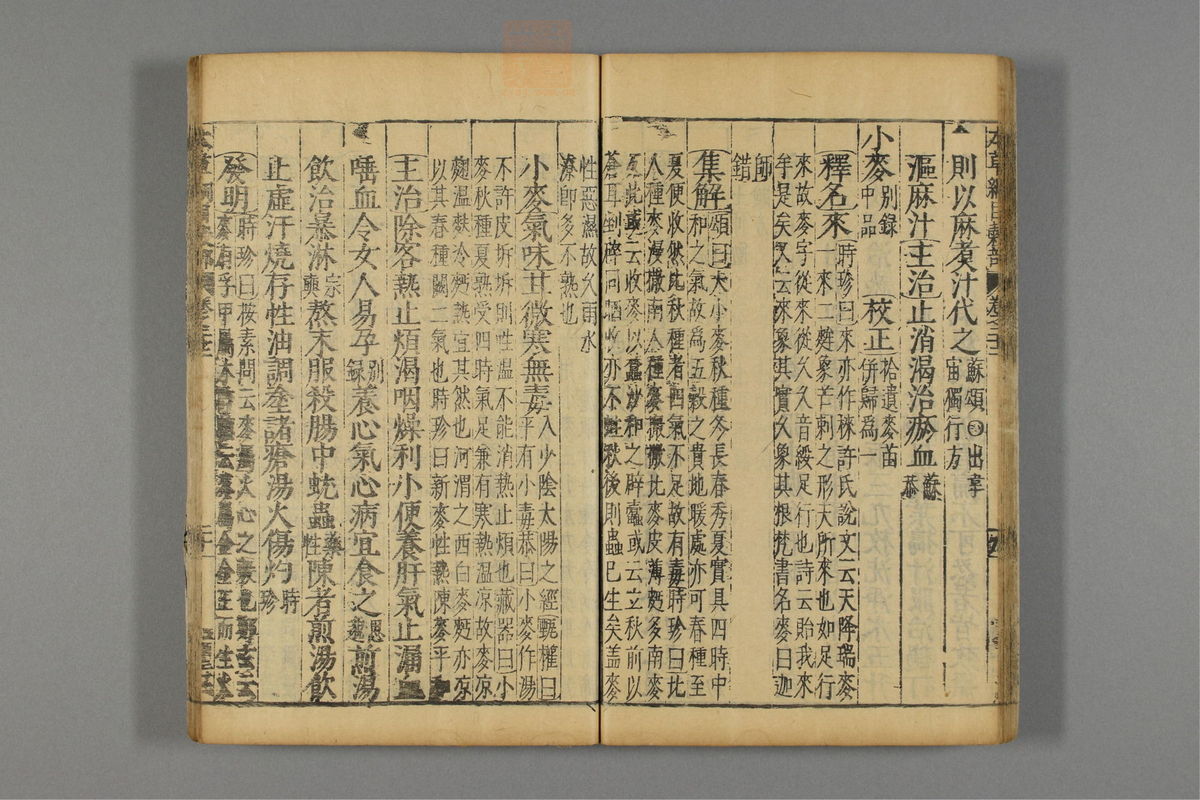 則以麻煮汁代之蘇頌○出韋
宙獨行方
漚麻汁主治止消渴治瘀血蘇
恭
小麥別錄
中品校正拾遺麥苗
併歸為一
釋名來時珍曰來亦作棶許氏說文云天降瑞麥
一來二麰象芒刺之形天所來也如足行
來故麥字從來從夂夂音綏足行也詩云貽我來
牟是矣又云來象其實夂象其根梵書名麥曰迦
師
錯
集解頌曰大小麥秋種冬長春秀夏實具四時中
和之氣故為五穀之貴地暖處亦可春種至
夏便收然比秋種者四氣不足故有毒時珍曰北
人種麥漫撒南人種麥撮撒北麥皮薄麪多南麥
反此或云收麥以蠶沙和之辟蠹或云立秋前以
蒼耳剉碎同晒收亦不蛀秋後則蟲已生矣蓋麥
性惡濕故久雨水
潦即多不熟也
小麥氣味甘微寒無毒入少陰太陽之經甄權曰
平有小毒恭曰小麥作湯
不許皮坼坼則性溫不能消熱止煩也藏器曰小
麥秋種夏熟受四時氣足兼有寒熱溫涼故麥涼
麴溫麩冷麪熱宜其然也河渭之西白麥麪亦涼
以其春種闕二氣也時珍曰新麥性熱陳麥平
主治除客熱止煩渴咽燥利小便養肝氣止漏血
唾血令女人易孕別
錄養心氣心病宜食之思
邈煎湯
飲治暴淋宗
奭熬末服殺腸中蚘蟲藥
性陳者煎湯飲
止虛汗燒存性油調塗諸瘡湯火傷灼時
珍
發明時珍曰按素問云麥屬火心之穀也鄭玄云
麥有孚甲屬木許慎云麥屬金金王而生火